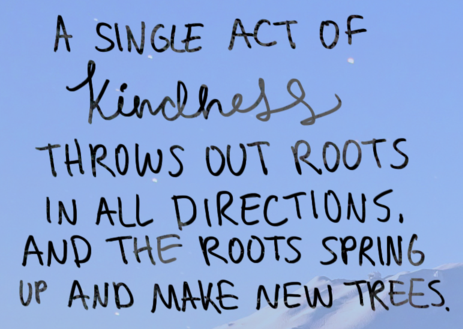 A SINGLE ACT OF
Kindness
THROWS OUT ROOTS
IN ALL DIRECTIONS,
AND THE ROOTS SPRING
UP AND MAKE NEW TREES.